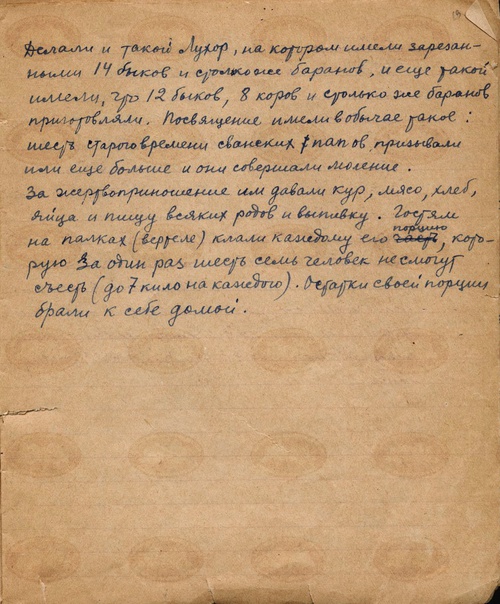 19
Делали и такой Лухор, на котором имели зарезан-
ными 14 быков и столько же баранов, и еще такой
имели, что 12 быков, 8 коров и столько же баранов
приготовляли. Посвящение имели в обычае такое:
шесть старого времени сванских пап ов призывали
или еще больше и они совершали моление.
За жертвоприношение им давали кур, мясо, хлеб,
яйца и пищу всяких родов и выпивку. Гостям
на палках (вертеле) клали каждому его часть порцию, кото-
рую за один раз шесть семь человек не смогут
съесть (до 7 кило на каждого). Остатки своей порции
брали к себе домой.